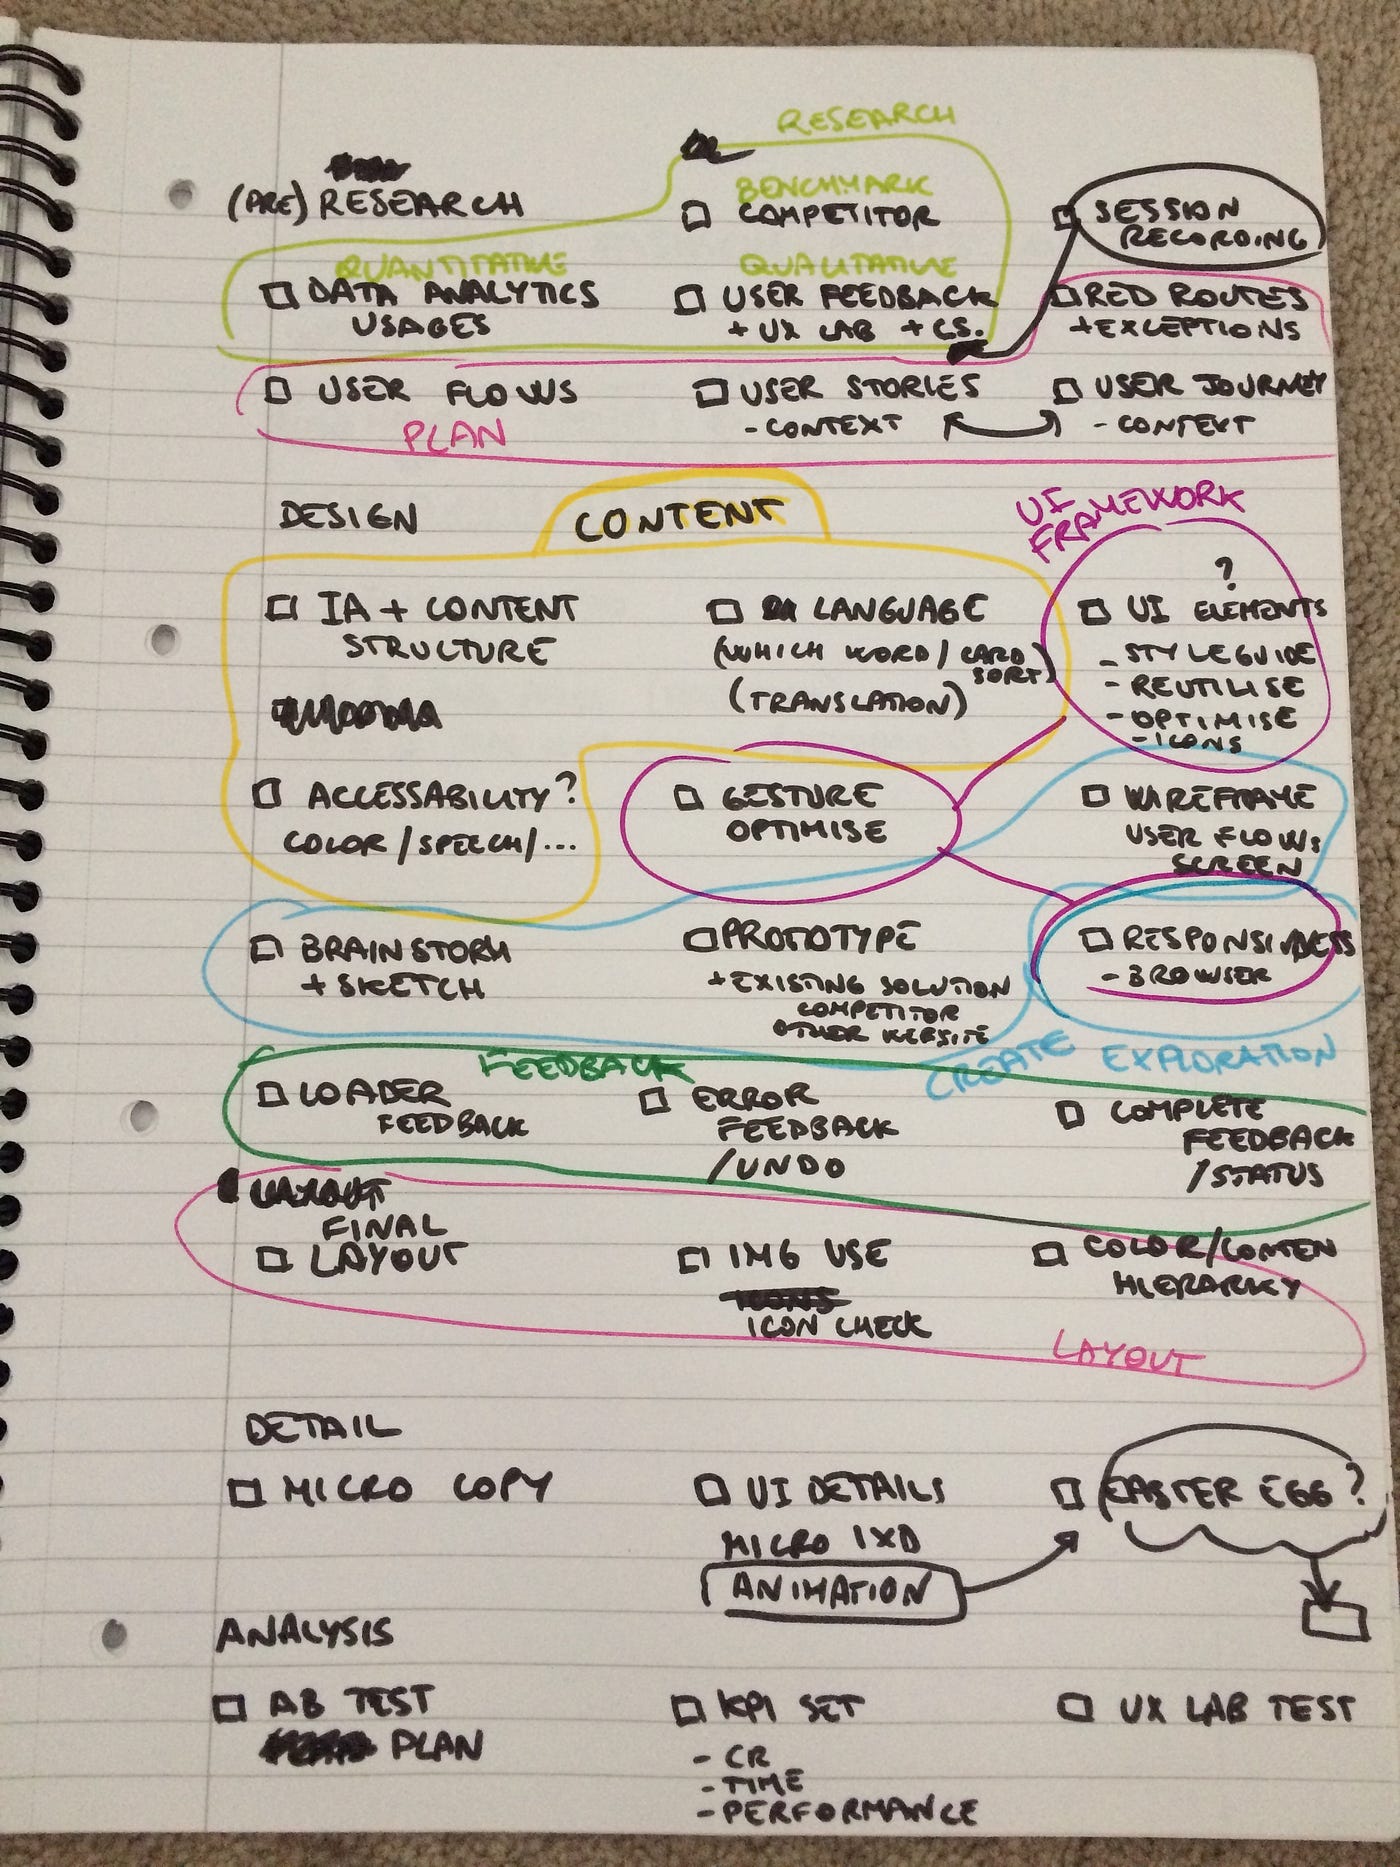 RESEARCH
(PRE) RESEARCH
BENCHMARK
□ COMPETITOR
□ SESSION
RECORDING
QUANTITATIVE
□ DATA ANALYTICS
USAGES
QUALITATIVE
□ USER FEEDBACK
+ UX LAB + CS.
□ RED ROUTES
+ EXCEPTIONS
□ USER FLOWS
PLAN
□ USER STORIES
- CONTEXT
□ USER JOURNEY
- CONTEXT
DESIGN
CONTENT
UI
FRAMEWORK
□ IA + CONTENT
STRUCTURE
□ LANGUAGE
(WHICH WORD / CARD
SORT)
(TRANSLATION)
?
□ UI ELEMENTS
- STYLEGUIDE
- REUTILISE
- OPTIMISE
- ICONS
□ ACCESSABILITY?
COLOR / SPEECH / ...
□ GESTURE
OPTIMISE
□ WIREFRAME
USER FLOWS
SCREEN
□ BRAINSTORM
+ SKETCH
□ PROTOTYPE
+ EXISTING SOLUTION
COMPETITOR
OTHER WEBSITE
□ RESPONSIVNESS
- BROWSER
CREATE EXPLORATION
FEEDBACK
□ LOADER
FEEDBACK
□ ERROR
FEEDBACK
/ UNDO
□ COMPLETE
FEEDBACK
/ STATUS
LAYOUT
FINAL
□ LAYOUT
□ IMG USE
ICONS
ICON CHECK
□ COLOR / CONTEN
HIERARKY
LAYOUT
DETAIL
□ MICRO COPY
□ UI DETAILS
MICRO IXD
ANIMATION
□ EASTER EGG?
ANALYSIS
□ AB TEST
PLAN
□ KPI SET
- CR
- TIME
- PERFORMANCE
□ UX LAB TEST